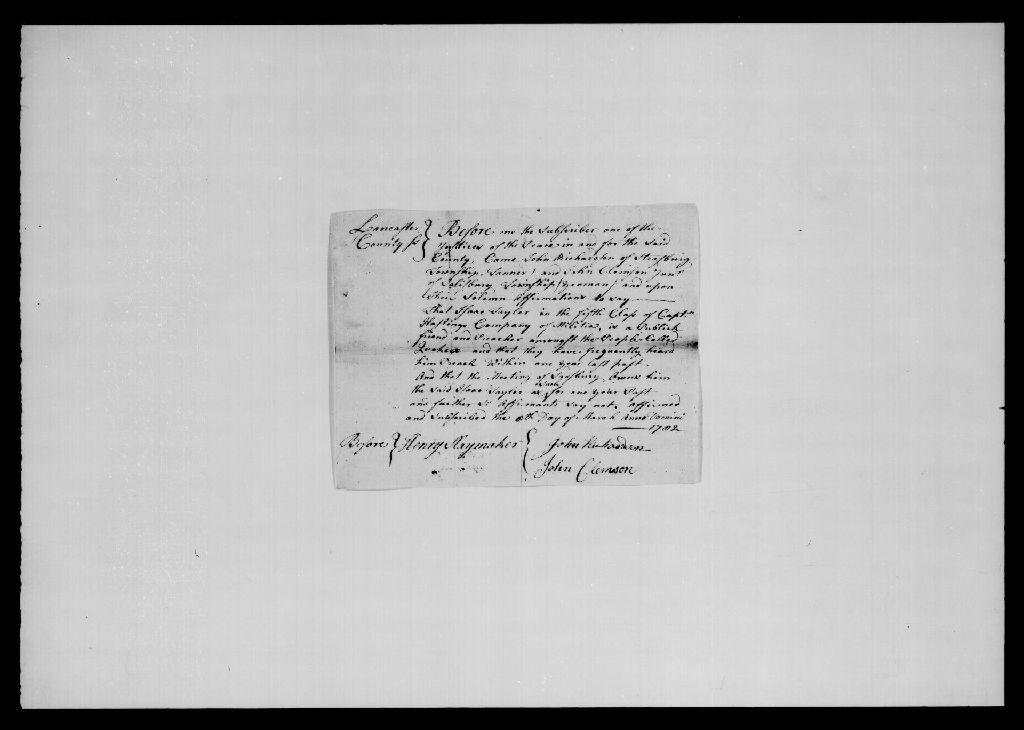 Lancaster County ss } Before me the Subscriber one of the
Justices of the Peace in and for the Said
County, Came John Richardson of Strasburg
Township (Tanner) and John Clemson Junr
of Salisbury Township (yeoman) and upon
their Solemn Affirmations do Say
That Isaac Taylor in the fifth Class of Captn
Hastings Company of Militia, is a Publick
friend and Preacher amongst the People Called
Quakers and that they have frequently heard
him Preach Within one year last past.
And that the Meeting of Sadsbury, Owns him
the Said Isaac Taylor as Such for one year Past
and farther Affirmants Say not, affirmed
and Subscribed the 8th Day of March Anno Domini
1782
Before } Henry Slaymaker { John Richardson
John Clemson